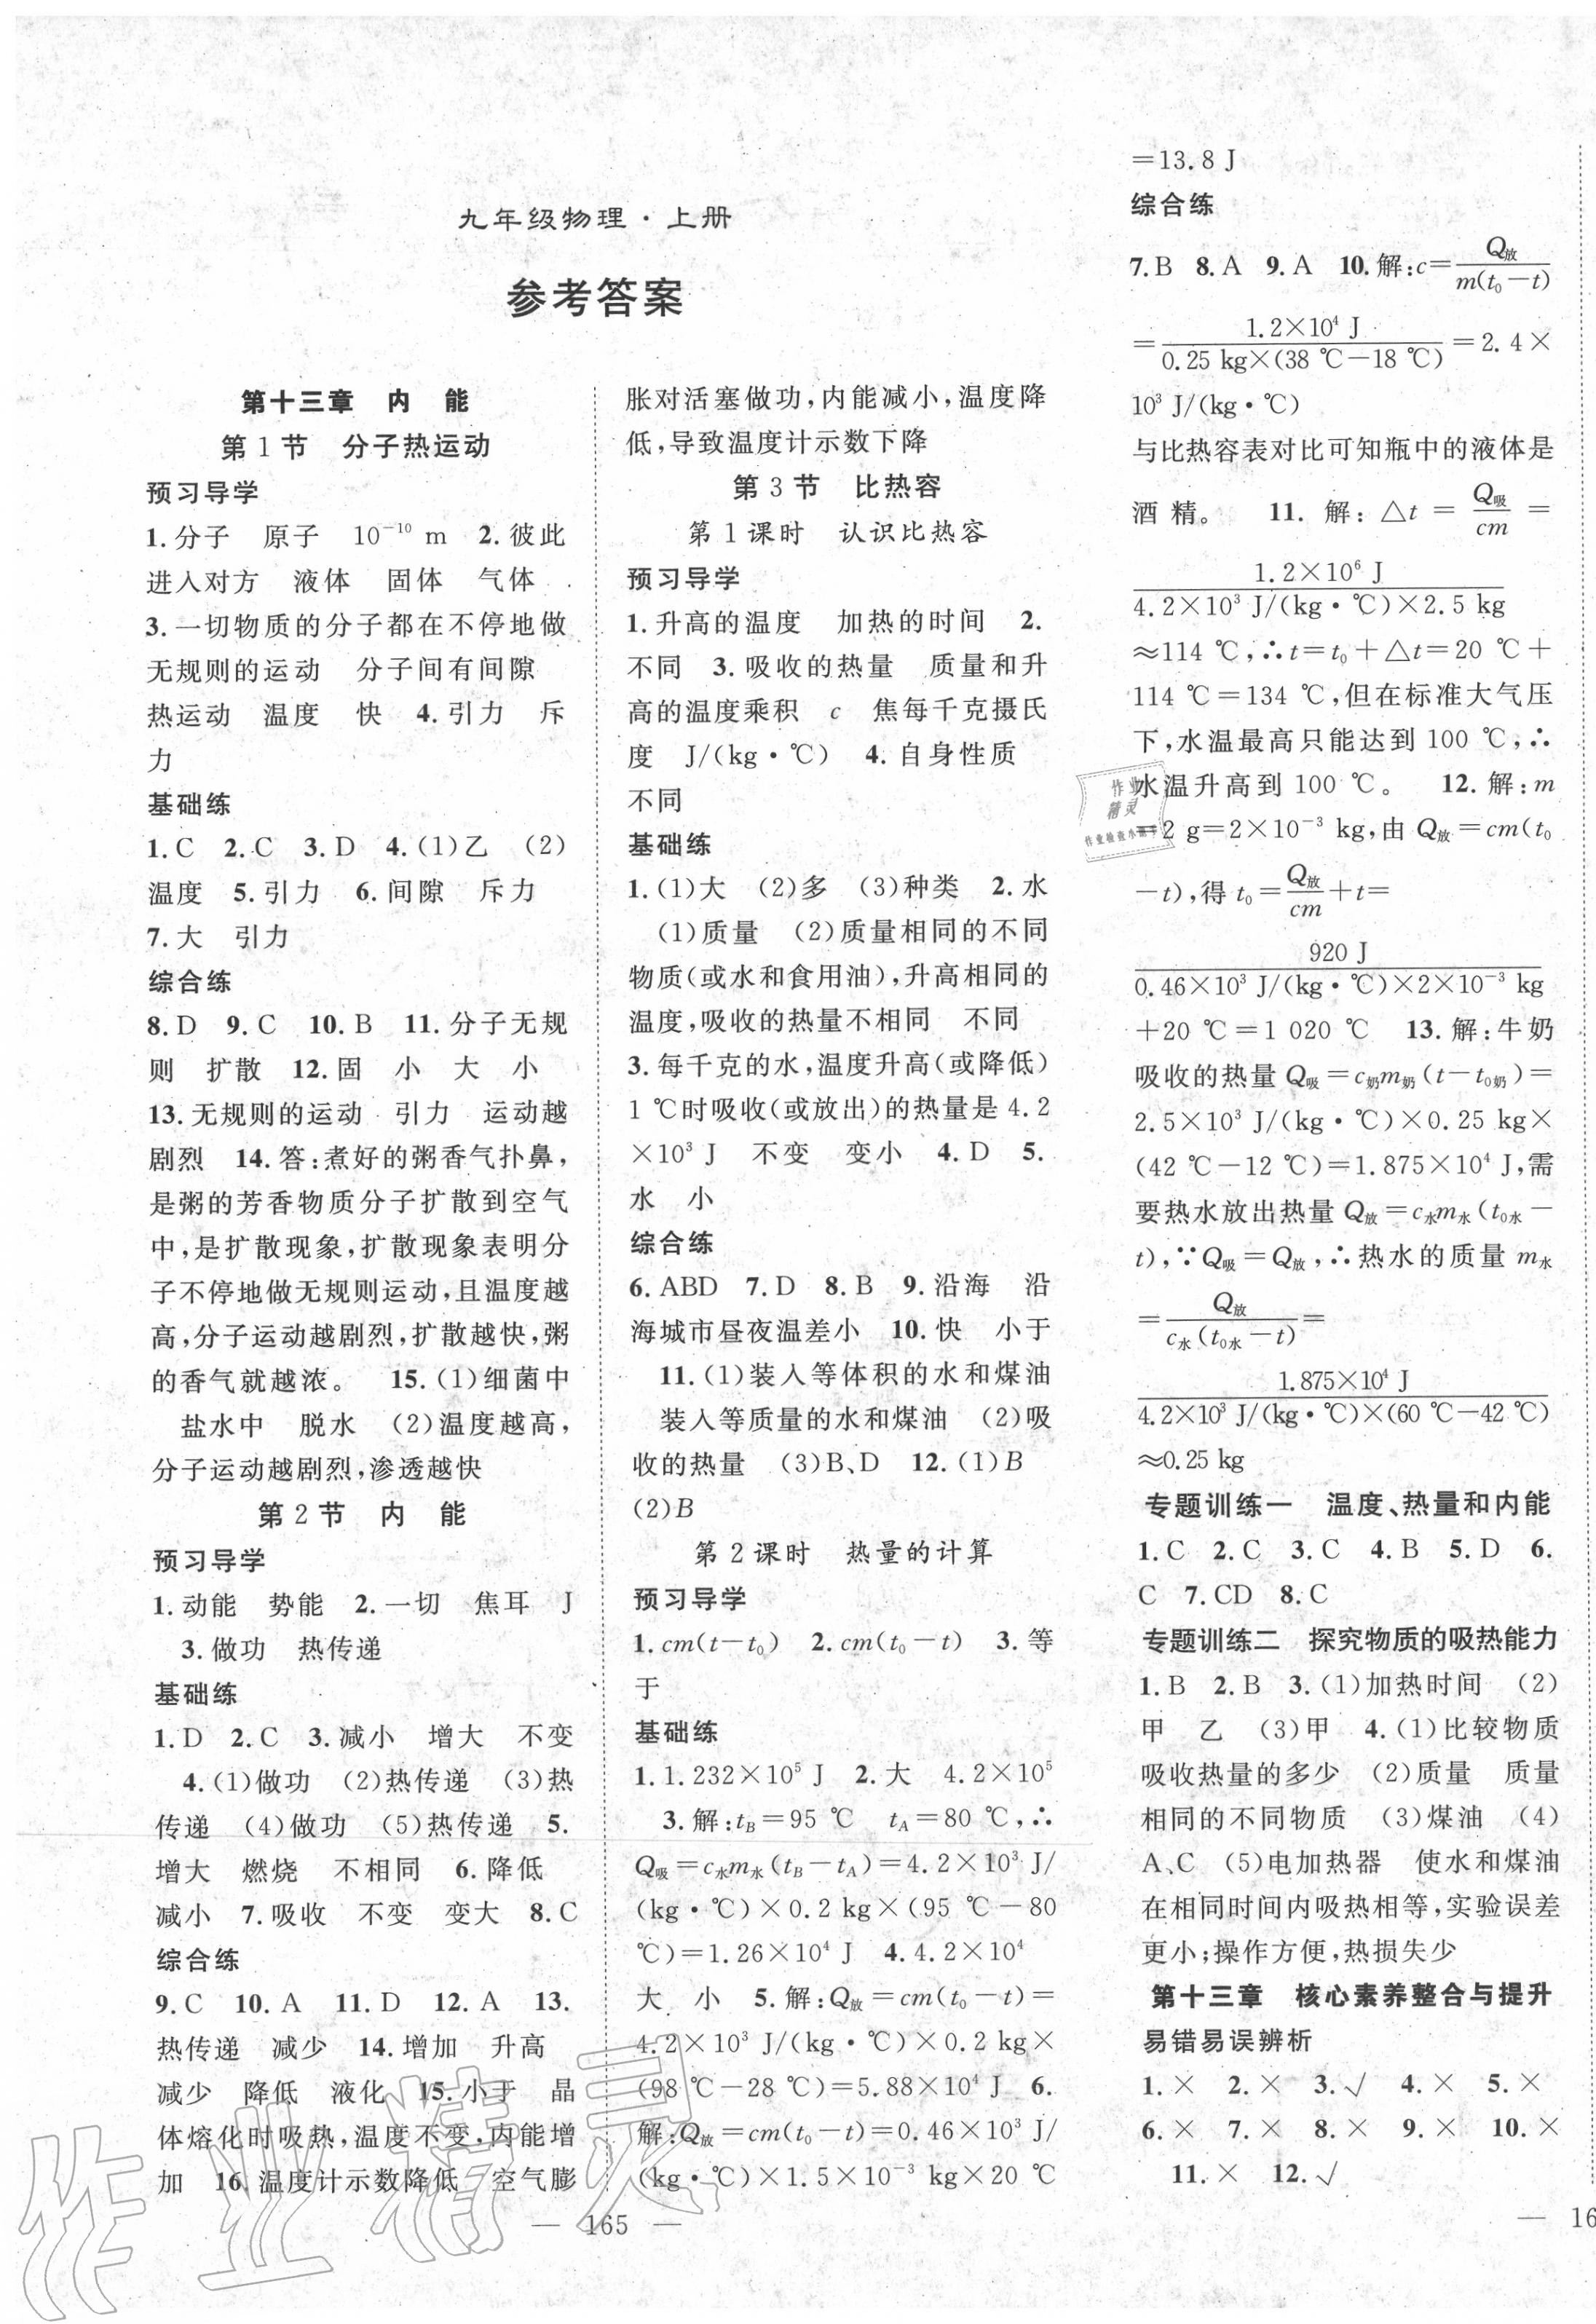 九年级物理·上册
参考答案
第十三章 内 能
第1节 分子热运动
预习导学
1.分子 原子 10⁻¹⁰ m 2.彼此
进入对方 液体 固体 气体
3.一切物质的分子都在不停地做
无规则的运动 分子间有间隙
热运动 温度 快 4.引力 斥
力
基础练
1.C 2.C 3.D 4.(1)乙 (2)
温度 5.引力 6.间隙 斥力
7.大 引力
综合练
8.D 9.C 10.B 11.分子无规
则 扩散 12.固 小 大 小
13.无规则的运动 引力 运动越
剧烈 14.答:煮好的粥香气扑鼻,
是粥的芳香物质分子扩散到空气
中,是扩散现象,扩散现象表明分
子不停地做无规则运动,且温度越
高,分子运动越剧烈,扩散越快,粥
的香气就越浓。 15.(1)细菌中
盐水中 脱水 (2)温度越高,
分子运动越剧烈,渗透越快
第2节 内 能
预习导学
1.动能 势能 2.一切 焦耳 J
3.做功 热传递
基础练
1.D 2.C 3.减小 增大 不变
4.(1)做功 (2)热传递 (3)热
传递 (4)做功 (5)热传递 5.
增大 燃烧 不相同 6.降低
减小 7.吸收 不变 变大 8.C
综合练
9.C 10.A 11.D 12.A 13.
热传递 减少 14.增加 升高
减少 降低 液化 15.小于 晶
体熔化时吸热,温度不变,内能增
加 16.温度计示数降低 空气膨
胀对活塞做功,内能减小,温度降
低,导致温度计示数下降
第3节 比热容
第1课时 认识比热容
预习导学
1.升高的温度 加热的时间 2.
不同 3.吸收的热量 质量和升
高的温度乘积 c 焦每千克摄氏
度 J/(kg·℃) 4.自身性质
不同
基础练
1.(1)大 (2)多 (3)种类 2.水
(1)质量 (2)质量相同的不同
物质(或水和食用油),升高相同的
温度,吸收的热量不相同 不同
3.每千克的水,温度升高(或降低)
1 ℃时吸收(或放出)的热量是4.2
×10³ J 不变 变小 4.D 5.
水 小
综合练
6.ABD 7.D 8.B 9.沿海 沿
海城市昼夜温差小 10.快 小于
11.(1)装入等体积的水和煤油
装入等质量的水和煤油 (2)吸
收的热量 (3)B、D 12.(1)B
(2)B
第2课时 热量的计算
预习导学
1.cm(t-t₀) 2.cm(t₀-t) 3.等
于
基础练
1.1.232×10⁵ J 2.大 4.2×10⁵
3.解:t_B=95 ℃ t_A=80 ℃,∴
Q吸=c水m水(t_B-t_A)=4.2×10³ J/
(kg·℃)×0.2 kg×(95 ℃-80
℃)=1.26×10⁴ J 4.4.2×10⁴
大 小 5.解:Q放=cm(t₀-t)=
4.2×10³ J/(kg·℃)×0.2 kg×
(98 ℃-28 ℃)=5.88×10⁴ J 6.
解:Q放=cm(t₀-t)=0.46×10³ J/
(kg·℃)×1.5×10⁻³ kg×20 ℃
— 165 —
=13.8 J
综合练
7.B 8.A 9.A 10.解:c=Q放/m(t₀-t)
=1.2×10⁴ J/0.25 kg×(38 ℃-18 ℃)=2.4×
10³ J/(kg·℃)
与比热容表对比可知瓶中的液体是
酒精。 11.解:△t=Q吸/cm=
1.2×10⁶ J/4.2×10³ J/(kg·℃)×2.5 kg
≈114 ℃,∴t=t₀+△t=20 ℃+
114 ℃=134 ℃,但在标准大气压
下,水温最高只能达到100 ℃,∴
水温升高到100 ℃。 12.解:m
=2 g=2×10⁻³ kg,由Q放=cm(t₀
-t),得t₀=Q放/cm+t=
920 J/0.46×10³ J/(kg·℃)×2×10⁻³ kg
+20 ℃=1 020 ℃ 13.解:牛奶
吸收的热量Q吸=c奶m奶(t-t₀奶)=
2.5×10³ J/(kg·℃)×0.25 kg×
(42 ℃-12 ℃)=1.875×10⁴ J,需
要热水放出热量Q放=c水m水(t₀水-
t),∵Q吸=Q放,∴热水的质量m水
=Q放/c水(t₀水-t)=
1.875×10⁴ J/4.2×10³ J/(kg·℃)×(60 ℃-42 ℃)
≈0.25 kg
专题训练一 温度、热量和内能
1.C 2.C 3.C 4.B 5.D 6.
C 7.CD 8.C
专题训练二 探究物质的吸热能力
1.B 2.B 3.(1)加热时间 (2)
甲 乙 (3)甲 4.(1)比较物质
吸收热量的多少 (2)质量 质量
相同的不同物质 (3)煤油 (4)
A、C (5)电加热器 使水和煤油
在相同时间内吸热相等,实验误差
更小;操作方便,热损失少
第十三章 核心素养整合与提升
易错易误辨析
1.× 2.× 3.√ 4.× 5.×
6.× 7.× 8.× 9.× 10.×
11.× 12.√
— 16
作业
精灵
作业精灵